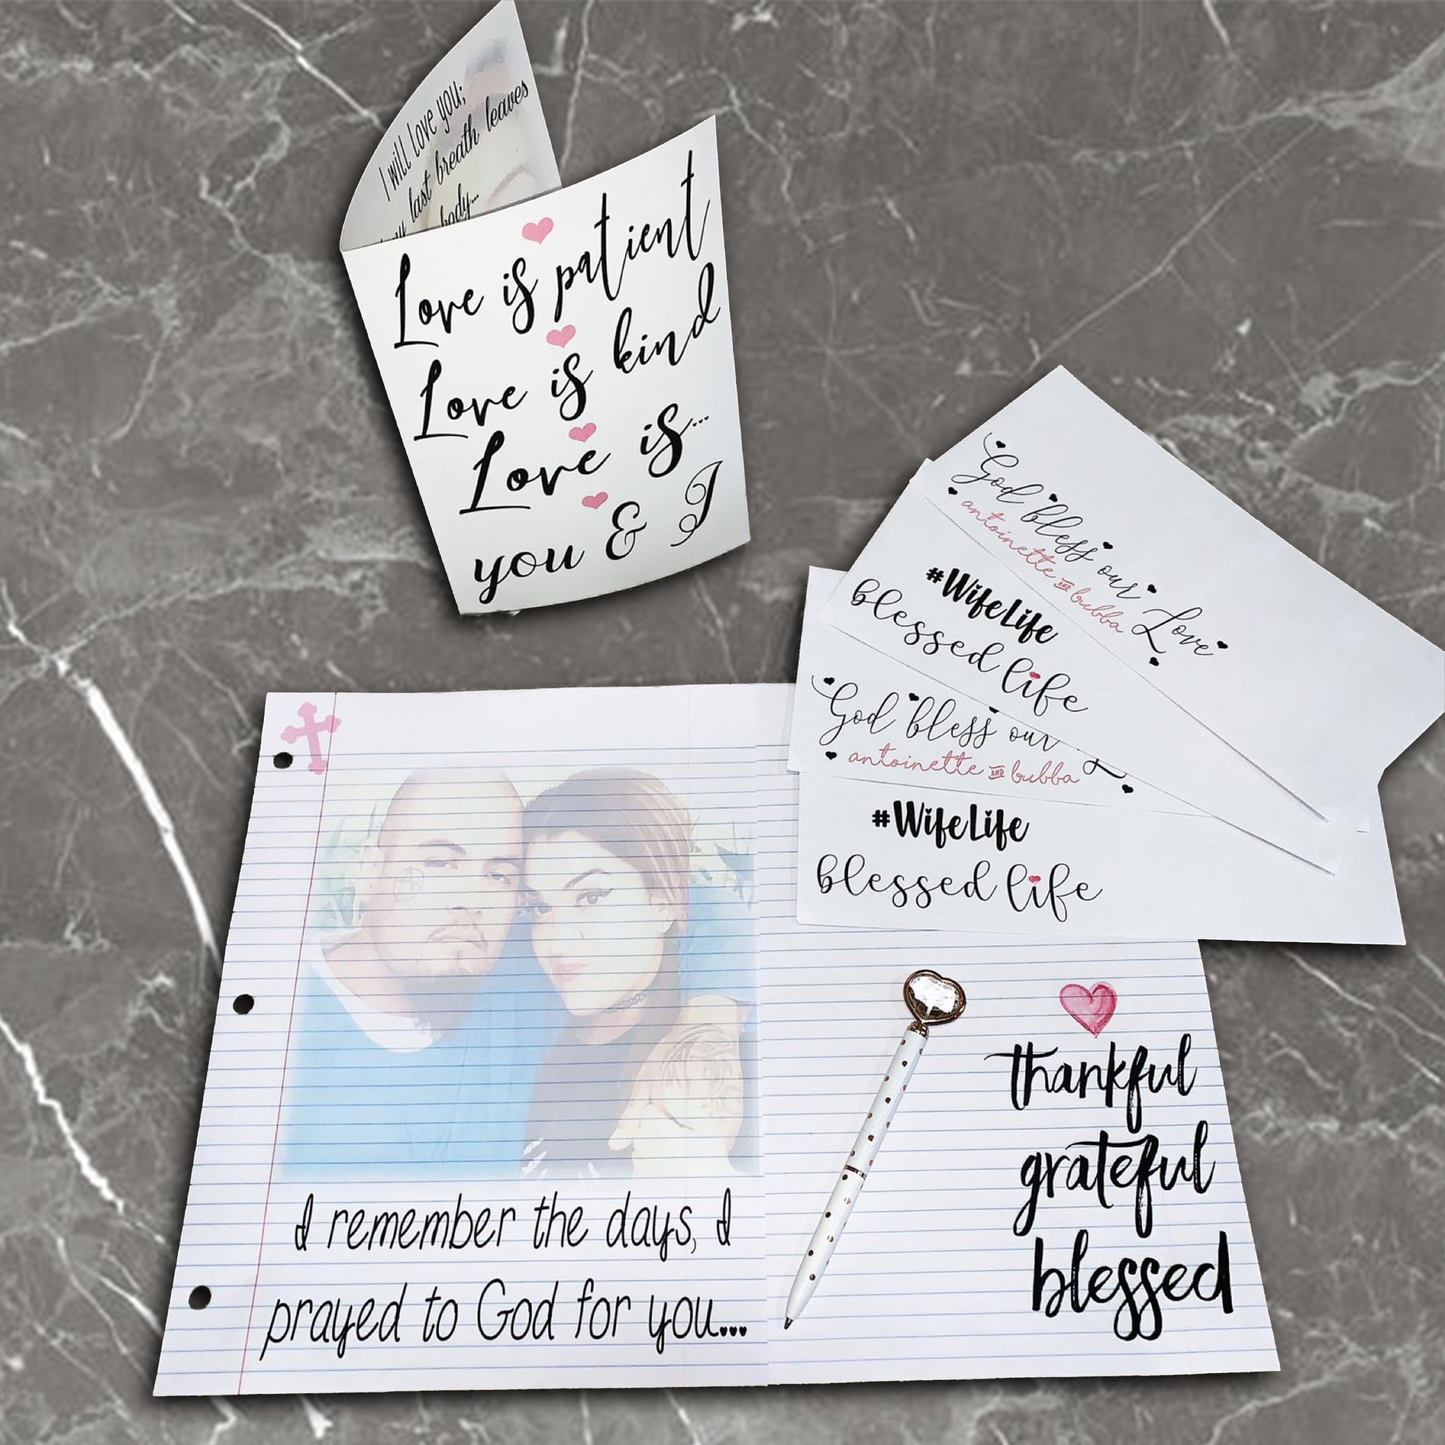 I will Love you;
my last breath leaves
body...
Love is patient
Love is kind
Love is...
you & I
God bless our Love
antoinette AND bubba
#WifeLife
blessed life
God bless our
antoinette AND bubba
#WifeLife
blessed life
I remember the days, I
prayed to God for you...
thankful
grateful
blessed